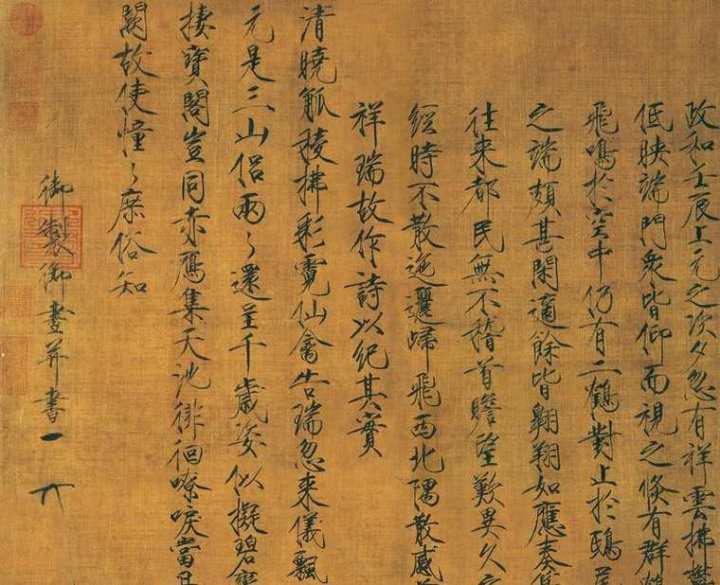 政和壬辰上元之次夕忽有祥雲拂鬱
低映端門眾皆仰而視之倏有群
飛鳴於空中仍有二鶴對止於鴟
之端頗甚閑適餘皆翱翔如應奏
往来都民無不稽首瞻望歎異久
經時不散迤邐歸飛西北隅散感
祥瑞故作詩以紀其實
清曉觚稜拂彩霓仙禽告瑞忽来儀飄
元是三山侶兩々還呈千歲姿似擬碧鸞
棲寶閣豈同赤鴈集天池徘徊嘹唳當丹
闕故使憧々庶俗知
御製御畫并書